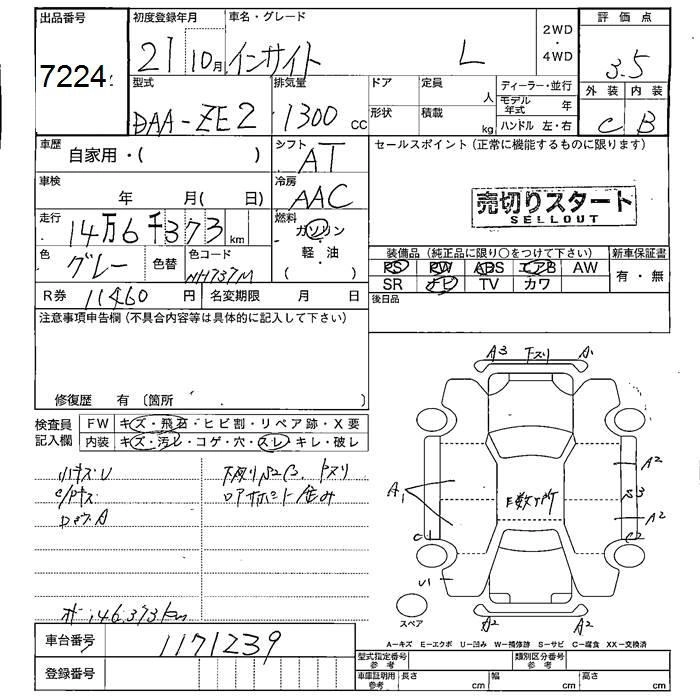 出品番号
7224
初度登録年月
21 10月
車名・グレード
インサイト L
2WD
・
4WD
評価点
3.5
外装 内装
C B
型式
DAA-ZE2
排気量
1300 CC
ドア 定員 人
形状 積載 kg
ディーラー・並行
モデル年式 年
ハンドル 左・右
車歴
自家用・( )
シフト
AT
車検
年 月( 日)
冷房
AAC
走行
14万6千373 km
燃料
ガソリン
軽・油
( )
色
グレー
色替
色コード
NH737M
R券 11460 円
名変期限 月 日
セールスポイント(正常に機能するものに限ります)
売切りスタート
SELLOUT
装備品(純正品に限り○をつけて下さい)
PS PW ABS エアB AW
SR ナビ TV カワ
新車保証書
有・無
後日品
注意事項申告欄(不具合内容等は具体的に記入して下さい)
修復歴 有〔箇所
検査員
記入欄
FW キズ・飛石・ヒビ割・リペア跡・X要
内装 キズ・汚レ・コゲ・穴・スレ・キレ・破レ
ハキズU
下廻りS2C3
オ:146,373km
A3 下スリ A1
A1
E数ヶ所
A2
S3
A2
C1
C2
U1
A2 A2
スペア
A-キズ E-エクボ U-凹み W-補修跡 S-サビ C-腐食 XX-交換済
車台番号
1171239
登録番号
型式指定番号
参考
類別区分番号
参考
車庫証明用
参考
長さ cm 幅 cm 高さ cm